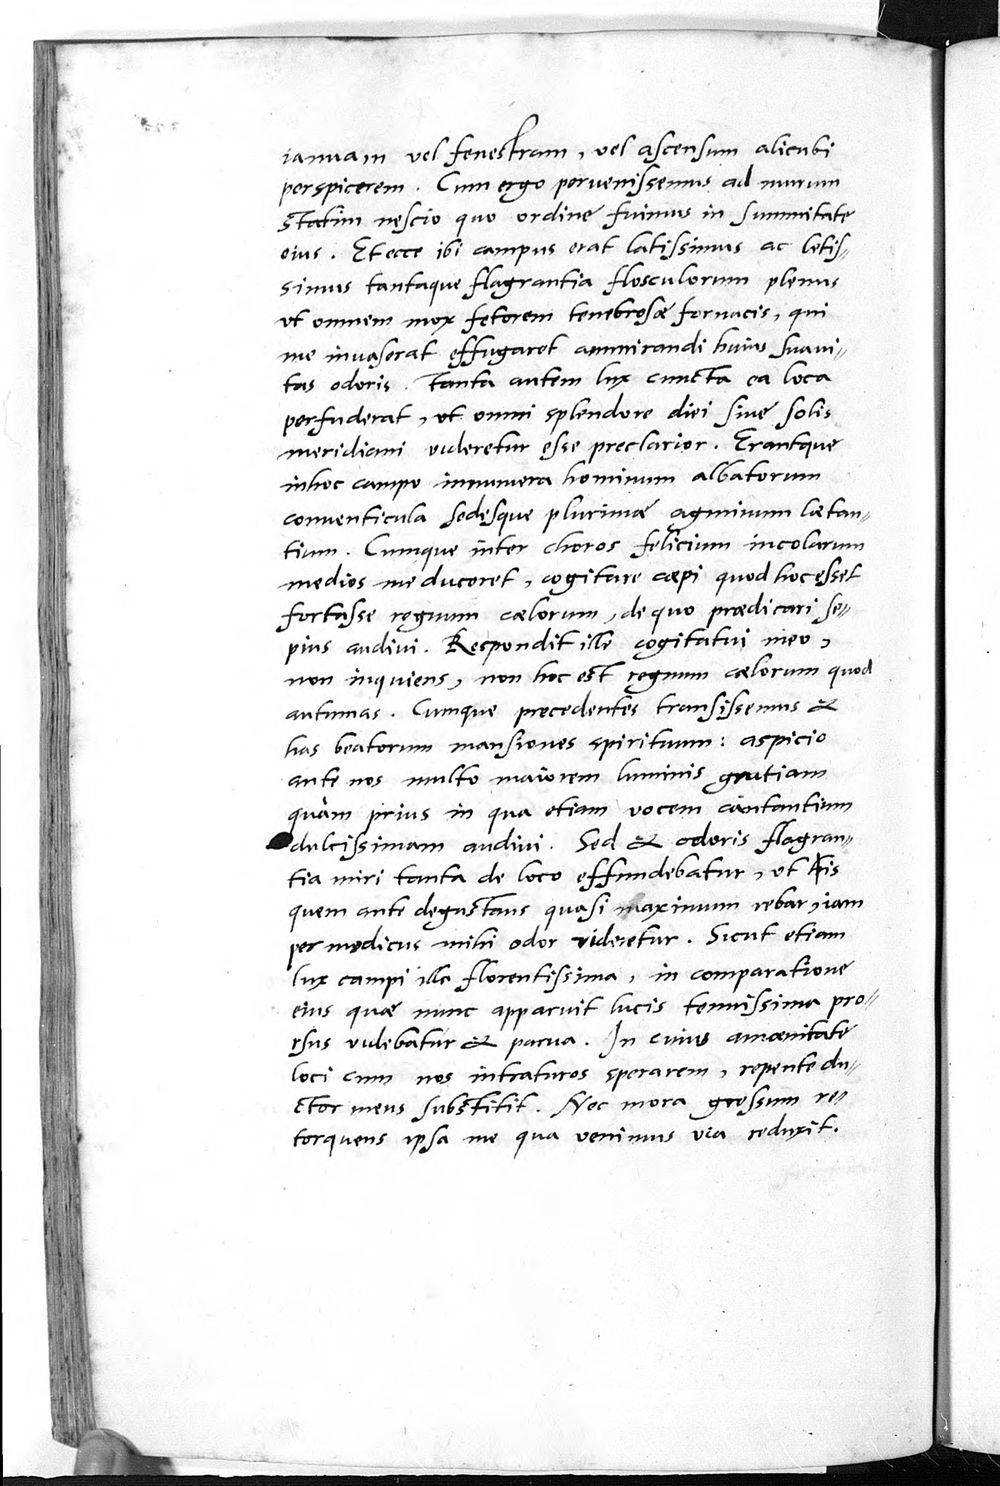 ianuam vel fenestram, vel ascensum alicubi
perspicerem. Cum ergo pervenissemus ad murum
statim nescio quo ordine fuimus in summitate
eius. Et ecce ibi campus erat latissimus ac letis=
simus tantaque flagrantia flosculorum plenus
ut omnem mox fetorem tenebrosæ fornacis, qui
me invaserat effugaret ammirandi huius suavi=
tas odoris. Tanta autem lux cuncta ea loca
perfuderat, ut omni splendore diei sive solis
meridiani videretur esse preclarior. Erantque
inhoc campo innumera hominum albatorum
conventicula sedesque plurimæ agminum lætan=
tium. Cumque inter choros felicium incolarum
medios me duceret, cogitare cæpi quod hoc esset
fortasse regnum cælorum, de quo prædicari se=
pius audivi. Respondit ille cogitatui meo,
non inquiens, non hoc est regnum cælorum quod
autumas. Cumque precedentes transissemus &
has beatorum mansiones spirituum: aspicio
ante nos multo maiorem luminis gratiam
quàm prius in qua etiam vocem cantantium
dulcissimam audivi. Sed & odoris flagran=
tia miri tanta de loco effundebatur, ut his
quem ante degustans quasi maximum rebar, iam
per modicus mihi odor videretur. Sicut etiam
lux campi illa florentissima, in comparatione
eius quæ nunc apparuit lucis tenuissima pro=
rsus videbatur & parva. In cuius amœnitate
loci cum nos intraturos sperarem, repente du=
ctor meus substitit. Nec mora gressum re=
torquens ipsa me qua venimus via reduxit.